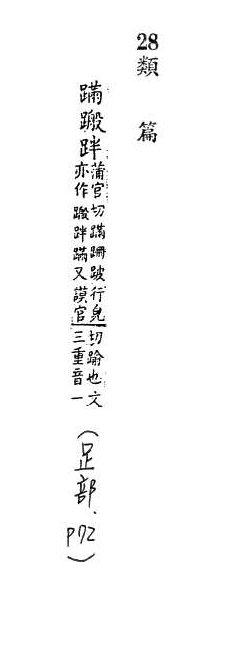 28 類篇
蹣跘
蒲官切蹣跚跛行皃
亦作跘蹣又謨官
切踰也文
三重音一
(足部. P72)